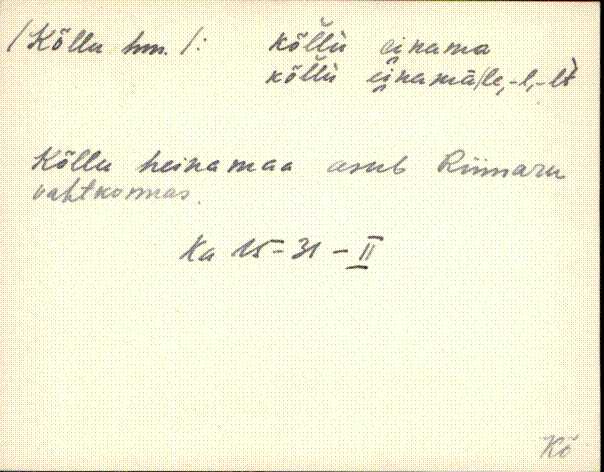 /Kõllu hm./: kõllù einama
kõllù einamà/le, -l, -lt
Kõllu heinamaa asub Riimaru
vahtkonnas.
Ka 15-31-II
Kõ